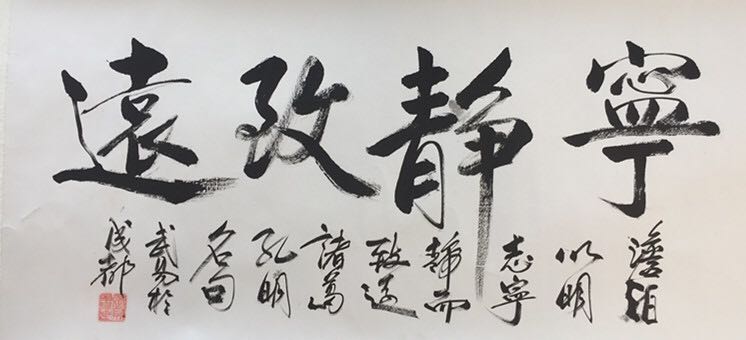 寧靜致遠
澹泊
以明
志寧
靜而
致遠
諸葛
孔明
名句
於
成都